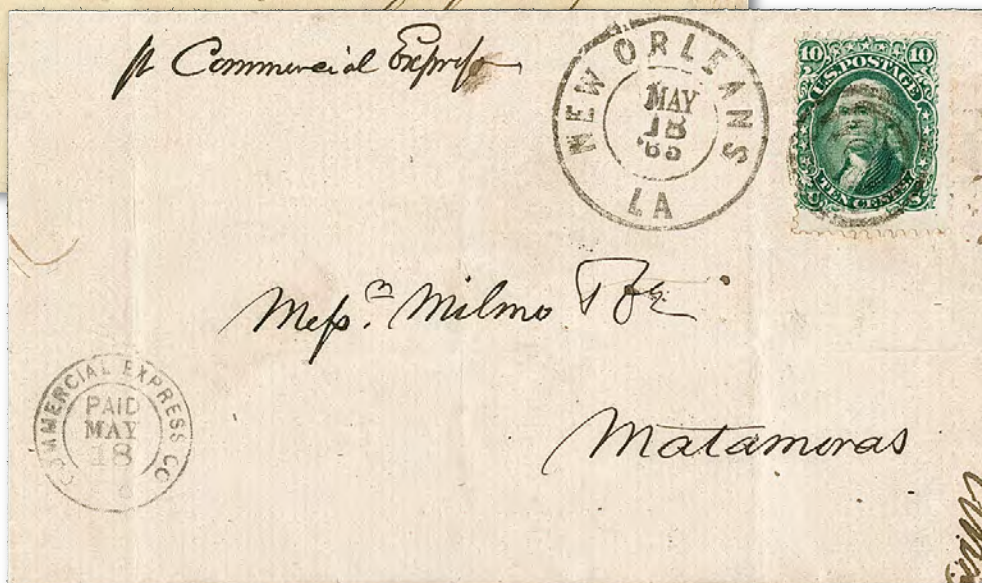 pr Commercial Express
NEW ORLEANS
MAY
18
'65
LA
10 10
U.S. POSTAGE
TEN CENTS
Mess.rs Milmo & Co
COMMERCIAL EXPRESS CO
PAID
MAY
18
Matamoras